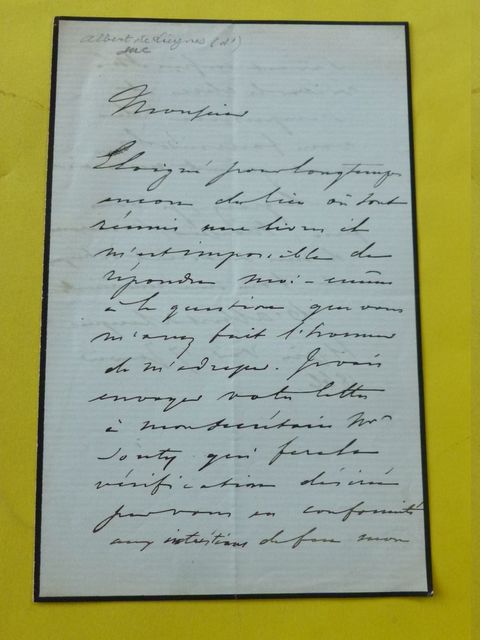 Albert de Luynes (d')
duc
Monsieur
Eloigné pour longtemps
encore du lieu où sont
réunis mes livres il
m'est impossible de
répondre moi-même
à la question que vous
m'avez fait l'honneur
de m'adresser. Je vais
envoyer votre lettre
à mon secrétaire Mr
qui fera la
vérification désirée
par vous en conformité
aux intentions de feu mon